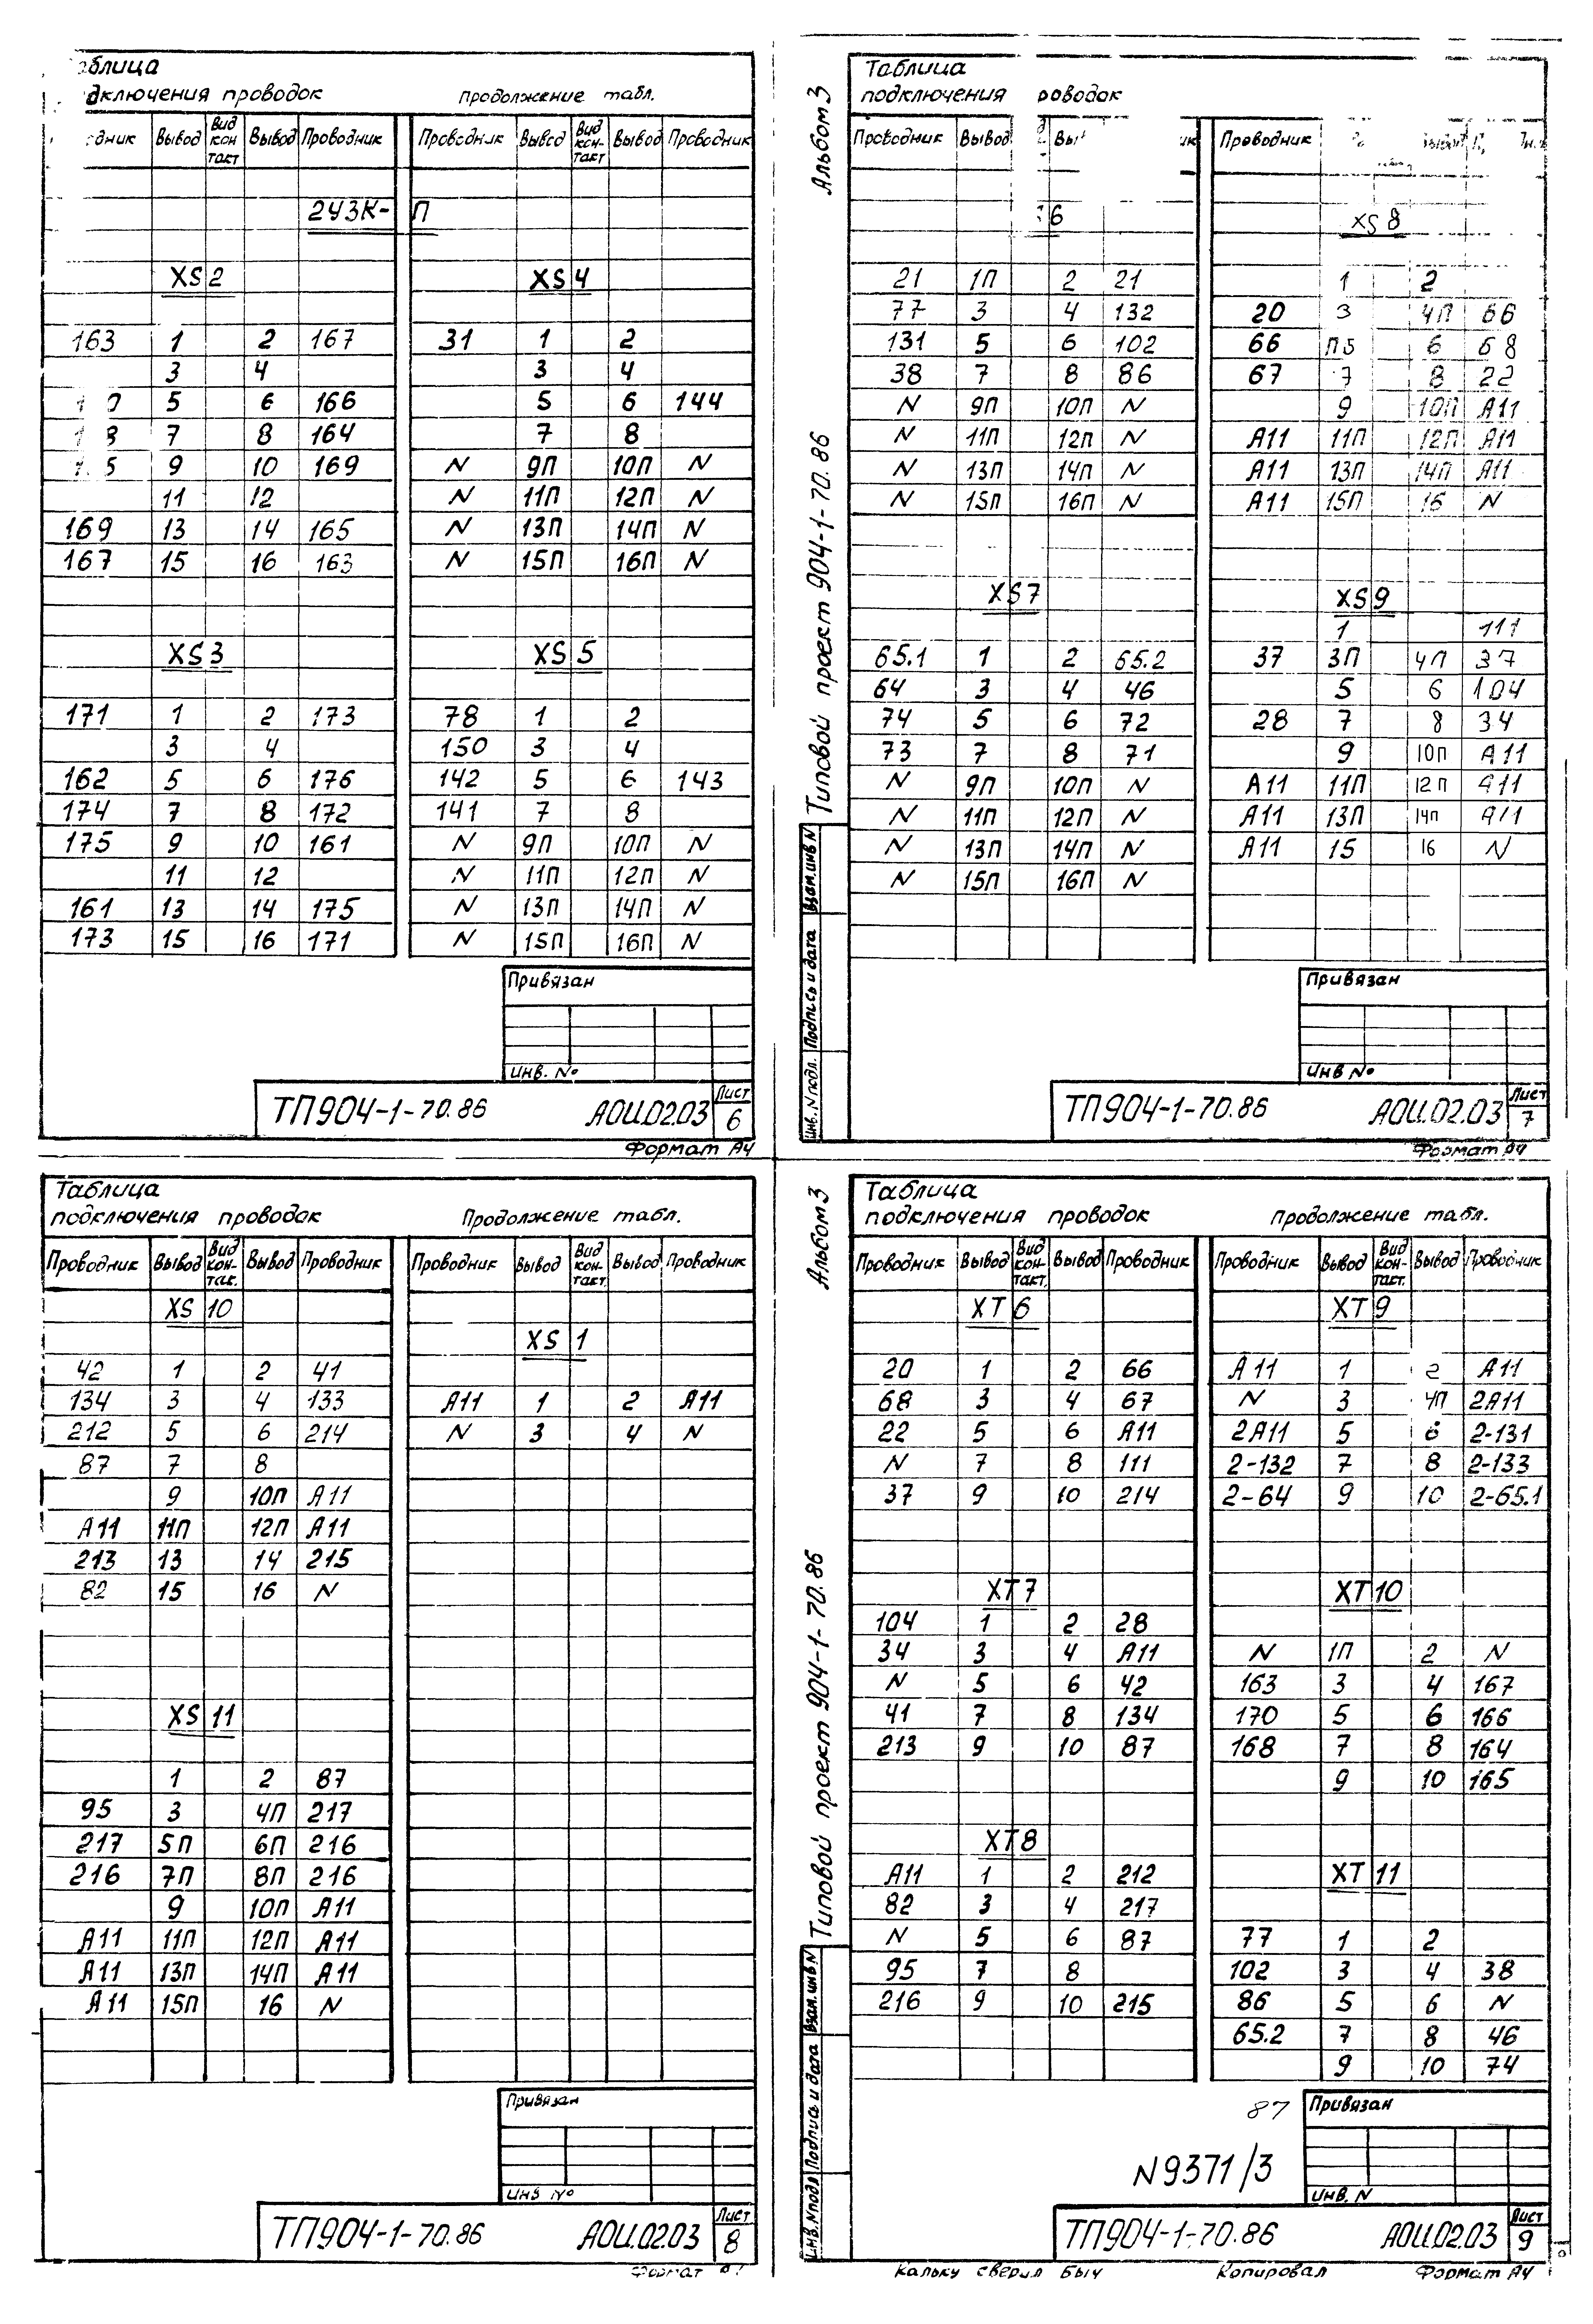 аблица
дключения проводок Продолжение табл.
дник Вывод Вид кон такт Вывод Проводник Проводник Вывод Вид кон- такт Вывод Проводник
2УЗК- П
XS2 XS4
163 1 2 167 31 1 2
3 4 3 4
5 6 166 5 6 144
7 8 164 7 8
9 10 169 N 9П 10П N
11 12 N 11П 12П N
169 13 14 165 N 13П 14П N
167 15 16 163 N 15П 16П N
XS3 XS5
171 1 2 173 78 1 2
3 4 150 3 4
162 5 6 176 142 5 6 143
174 7 8 172 141 7 8
175 9 10 161 N 9П 10П N
11 12 N 11П 12П N
161 13 14 175 N 13П 14П N
173 15 16 171 N 15П 16П N
Привязан
Инв. №
ТП904-1-70.86 АОИ.02.03 Лист 6
Формат А4
Альбом 3
Типовой проект 904-1-70.86
Инв. N подл. Подпись и дата Взам.инв N
Таблица
подключения роводок
Проводник Вывод Вы ик Проводник Вывод
6 XS8
21 1П 2 21 1 2
77 3 4 132 20 3 4П 66
131 5 6 102 66 П5 6 68
38 7 8 86 67 7 8 22
N 9П 10П N 9 10П А11
N 11П 12П N А11 11П 12П А11
N 13П 14П N А11 13П 14П А11
N 15П 16П N А11 15П 16 N
XS7 XS9
1 111
65.1 1 2 65.2 37 3П 4П 37
64 3 4 46 5 6 104
74 5 6 72 28 7 8 34
73 7 8 71 9 10П А11
N 9П 10П N А11 11П 12П А11
N 11П 12П N А11 13П 14П А11
N 13П 14П N А11 15 16 N
N 15П 16П N
Привязан
Инв №
ТП904-1-70.86 АОИ.02.03 Лист 7
Формат А4
Таблица
подключения проводок Продолжение табл.
Проводник Вывод Вид кон- так. Вывод Проводник Проводник Вывод Вид кон- такт. Вывод Проводник
XS 10
XS 1
42 1 2 41
134 3 4 133 А11 1 2 А11
212 5 6 214 N 3 4 N
87 7 8
9 10П А11
А11 11П 12П А11
213 13 14 215
82 15 16 N
XS 11
1 2 87
95 3 4П 217
217 5П 6П 216
216 7П 8П 216
9 10П А11
А11 11П 12П А11
А11 13П 14П А11
А11 15П 16 N
Привязан
Инв №
ТП904-1-70.86 АОИ.02.03 Лист 8
Формат
Альбом 3
Типовой проект 904-1-70.86
Инв. N подл Подпись и дата Взам. инв N
Таблица
подключения проводок Продолжение табл.
Проводник Вывод Вид кон- такт. Вывод Проводник Проводник Вывод Вид кон- такт. Вывод Проводник
XT 6 XT 9
20 1 2 66 А11 1 2 А11
68 3 4 67 N 3 4П 2А11
22 5 6 А11 2А11 5 6 2-131
N 7 8 111 2-132 7 8 2-133
37 9 10 214 2-64 9 10 2-65.1
XT 7 XT 10
104 1 2 28
34 3 4 А11 N 1П 2 N
N 5 6 42 163 3 4 167
41 7 8 134 170 5 6 166
213 9 10 87 168 7 8 164
9 10 165
XT8
А11 1 2 212 XT 11
82 3 4 217
N 5 6 87 77 1 2
95 7 8 102 3 4 38
216 9 10 215 86 5 6 N
65.2 7 8 46
9 10 74
87 Привязан
N9371/3
Инв. N
ТП904-1-70.86 АОИ.02.03 Лист 9
Кальку сверил Быч Копировал Формат А4